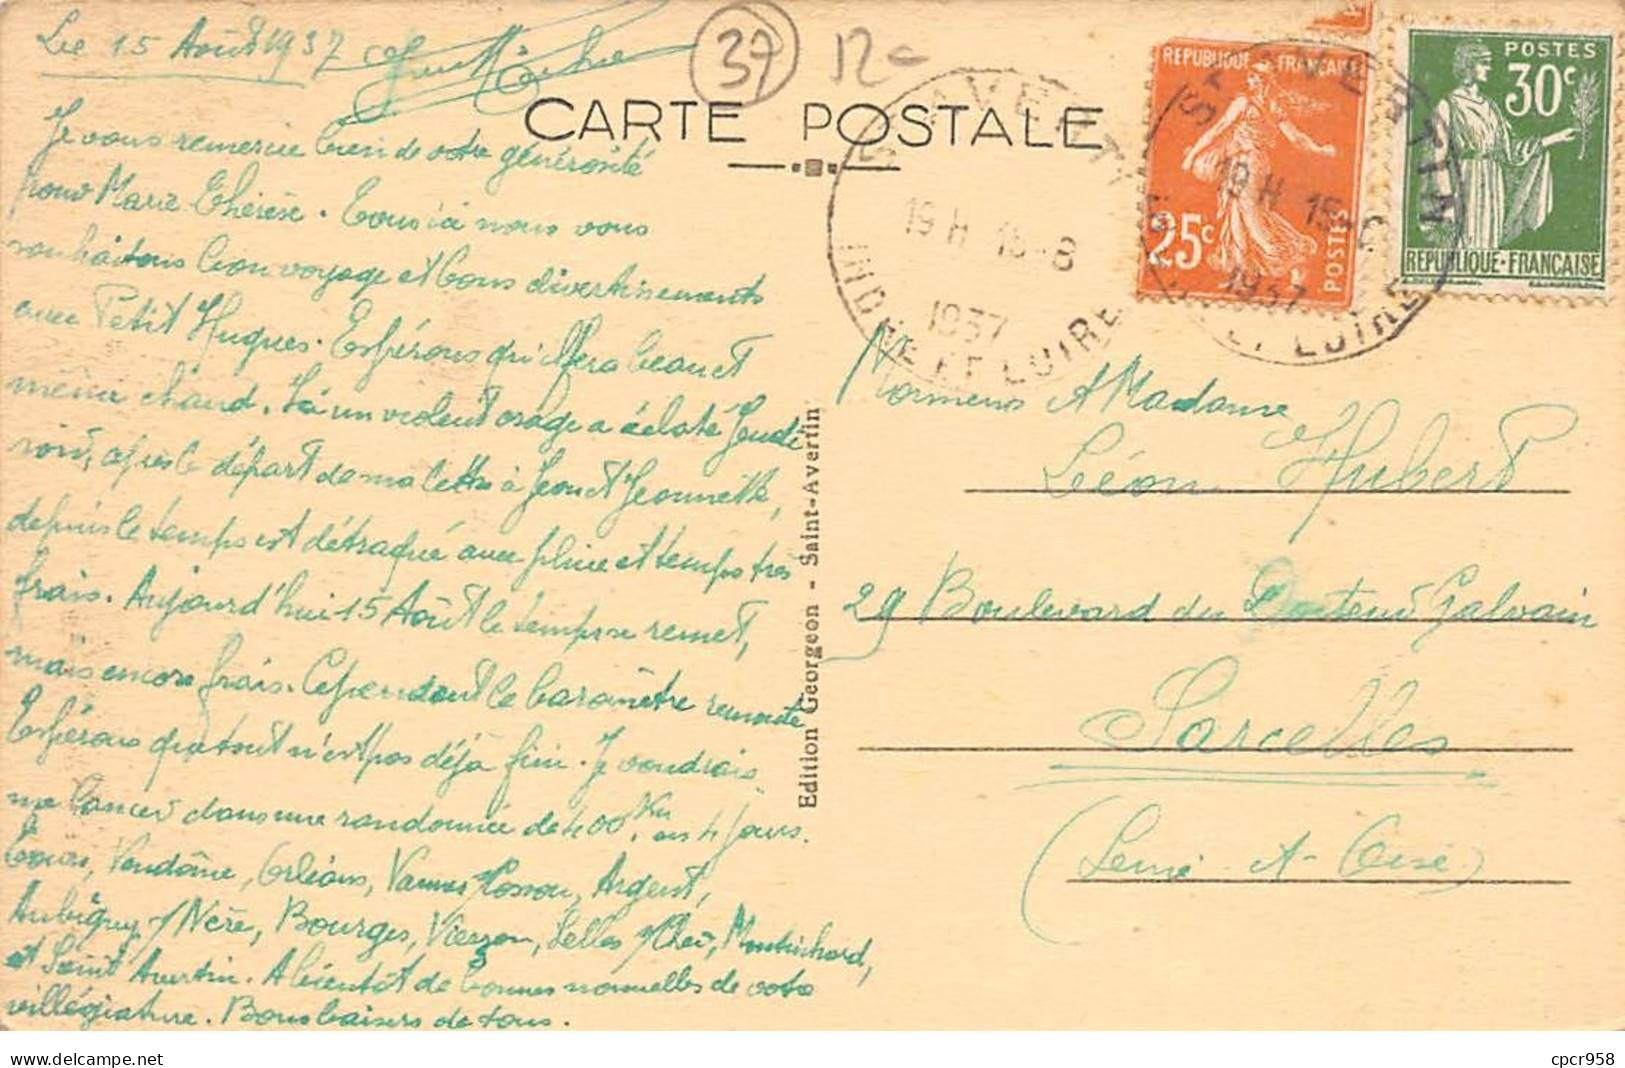 Le 15 Août 1937
37
12
CARTE POSTALE
REPUBLIQUE FRANÇAISE
25c
POSTES
POSTES
30c
REPUBLIQUE-FRANÇAISE
ST AVERTIN
19 H 15-8
1937
INDRE ET LOIRE
ST AVERTIN
19 H 15-8
1937
ET LOIRE
Je vous remercie bien de votre générosité
pour Marie Thérèse. Tous ici nous vous
souhaitons bon voyage et bons divertissements
avec Petit Hugues. Espérons qu'il fera beau et
même chaud. Ici un violent orage a éclaté Jeudi
soir, après le départ de ma lettre à Jean et Jeannette,
depuis le temps est détraqué avec pluie et temps très
frais. Aujourd'hui 15 Août le temps se remet,
mais encore frais. Cependant le baromètre remonte
Espérons que tout n'est pas déjà fini. Je voudrais
me lancer dans une randonnée de 400 Km en 4 jours.
Tours, Vendôme, Orléans, Vannes Argent,
Aubigny s/Nère, Bourges, Vierzon, Selles s/Cher, Montrichard,
et Saint Avertin. A bientôt de bonnes nouvelles de votre
villégiature. Bons baisers de tous.
Edition Georgeon - Saint-Avertin
Monsieur et Madame
Léon Hubert
29 Boulevard du Docteur Galvain
Sarcelles
(Seine-et-Oise)
cpcr958